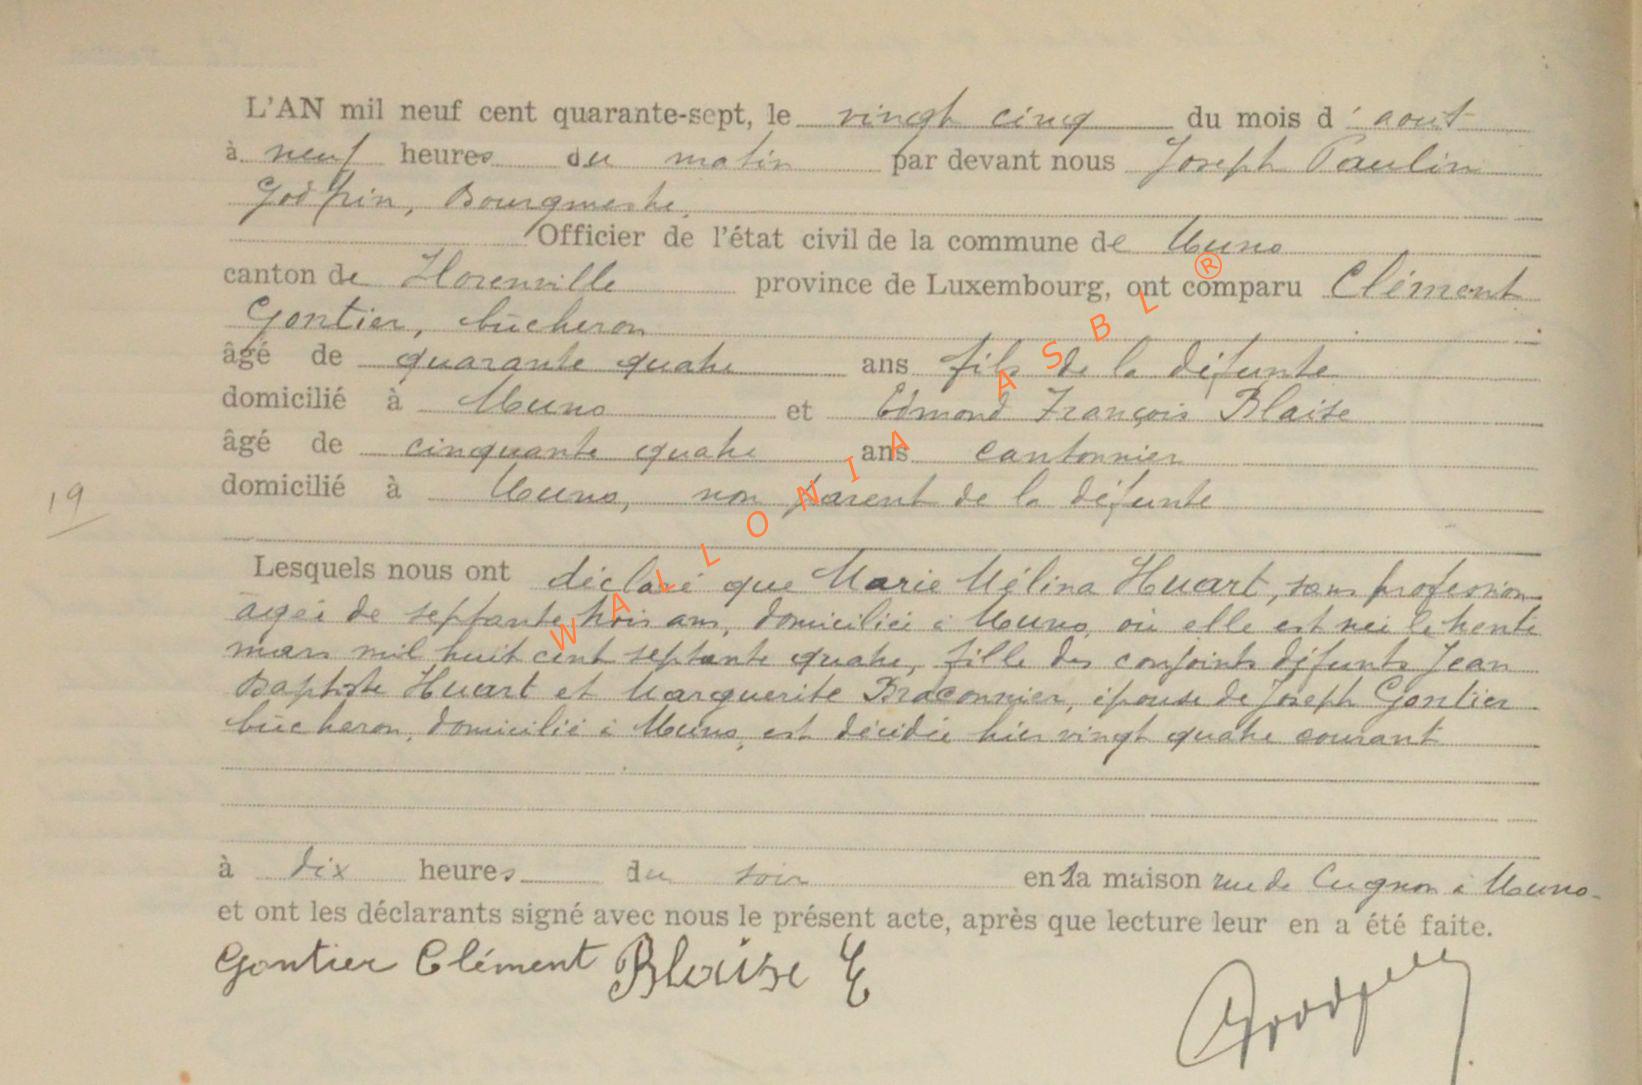 L'AN mil neuf cent quarante-sept, le vingt cinq du mois d'aout
à neuf heures du matin par devant nous Joseph Paulin
Godfrin, Bourgmestre,
Officier de l'état civil de la commune de Muno
canton de Florenville province de Luxembourg, ont comparu Clément
Gontier, bûcheron
âgé de quarante quatre ans fils de la défunte
domicilié à Muno et Edmond François Blaise
âgé de cinquante quatre ans cantonnier
domicilié à Muno, non parent de la défunte
19
Lesquels nous ont déclaré que Marie Mélina Huart, sans profession
âgée de septante trois ans, domiciliée à Muno, où elle est née le trente
mars mil huit cent septante quatre, fille des conjoints défunts Jean
Baptiste Huart et Marguerite Braconnier, épouse de Joseph Gontier
bûcheron, domicilié à Muno, est décédée hier vingt quatre courant
à dix heures du soir en la maison rue de Cugnon à Muno-
et ont les déclarants signé avec nous le présent acte, après que lecture leur en a été faite.
Gontier Clément Blaise E
WALLONIA ASBL ®